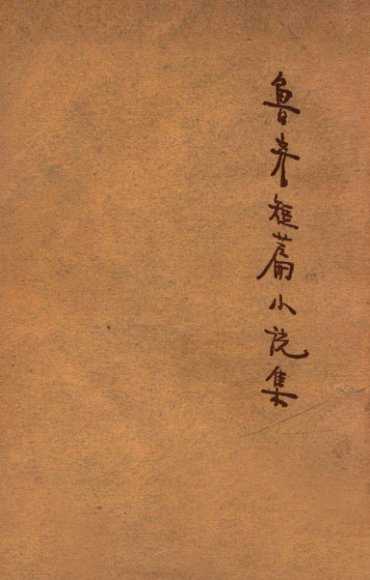 鲁彦短篇小说集